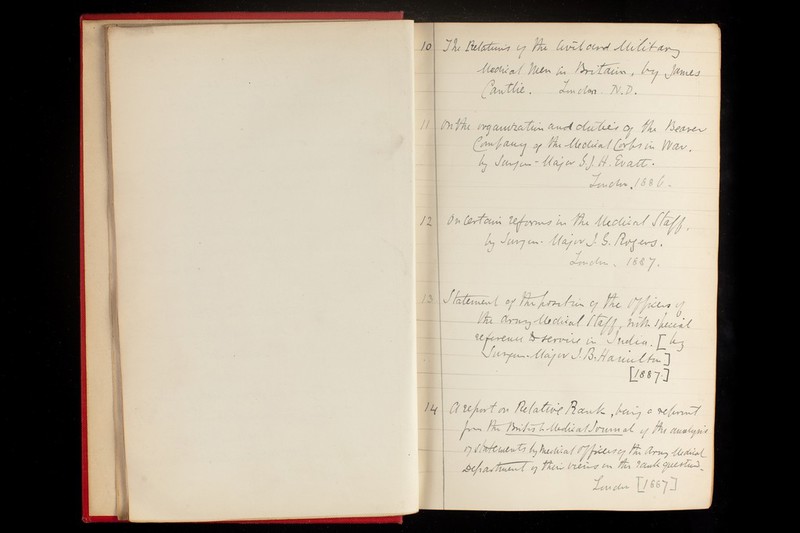 10 The Relations of the Civil and Military
Medical Men in Britain, by James
Cantlie. London N.D.
11 On the organization and duties of the Bearer
Company of the Medical Corps in War.
by Surgeon-Major G.J.H. Evatt.
London, 1886.
12 On Certain reforms in the Medical Staff,
by Surgeon-Major J. G. Rogers.
London. 1887.
13 Statement of the position of the Officers of
the Army Medical Staff, with special
reference to service in India. [by
Surgeon-Major J.B. Hamilton]
[1887.]
14 A report on Relative Rank, being a reprint
from the British Medical Journal of the analysis
of statements by Medical Officers of the Army Medical
Department of their views on the rank question.
London [1887]